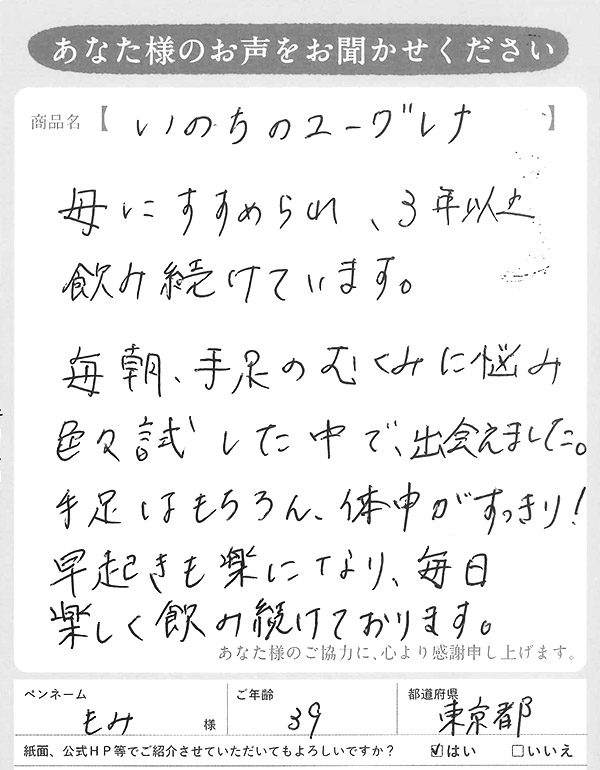 あなた様のお声をお聞かせください
商品名【いのちのユーグレナ】
母にすすめられ、3年以上
飲み続けています。
毎朝、手足のむくみに悩み
色々試した中で、出会えました。
手足はもちろん、体中がすっきり!
早起きも楽になり、毎日
楽しく飲み続けております。
あなた様のご協力に、心より感謝申し上げます。
ペンネーム もみ 様 ご年齢 39 都道府県 東京都
紙面、公式HP等でご紹介させていただいてもよろしいですか? ☑はい □いいえ